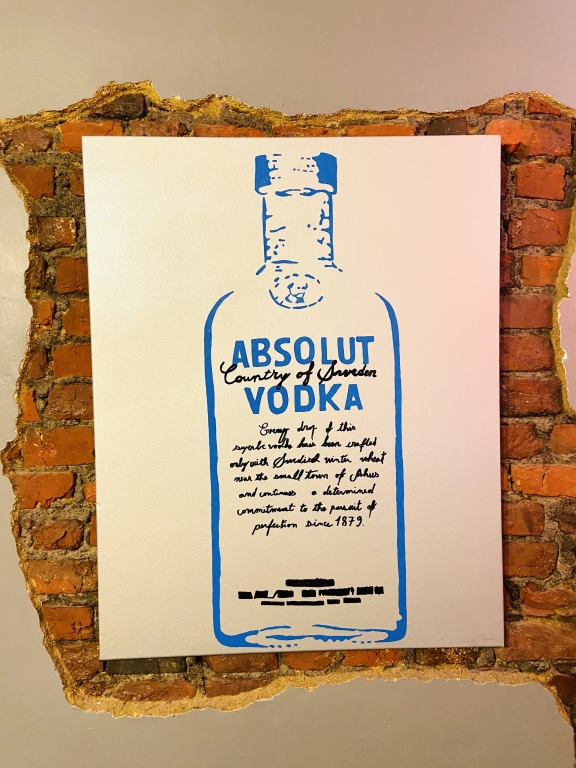 ABSOLUT
Country of Sweden
VODKA
Every drop of this
superbe vodka have been crafted
only with Swedish winter wheat
near the small town of Åhus
and continues a determined
commitment to the pursuit of
perfection since 1879.